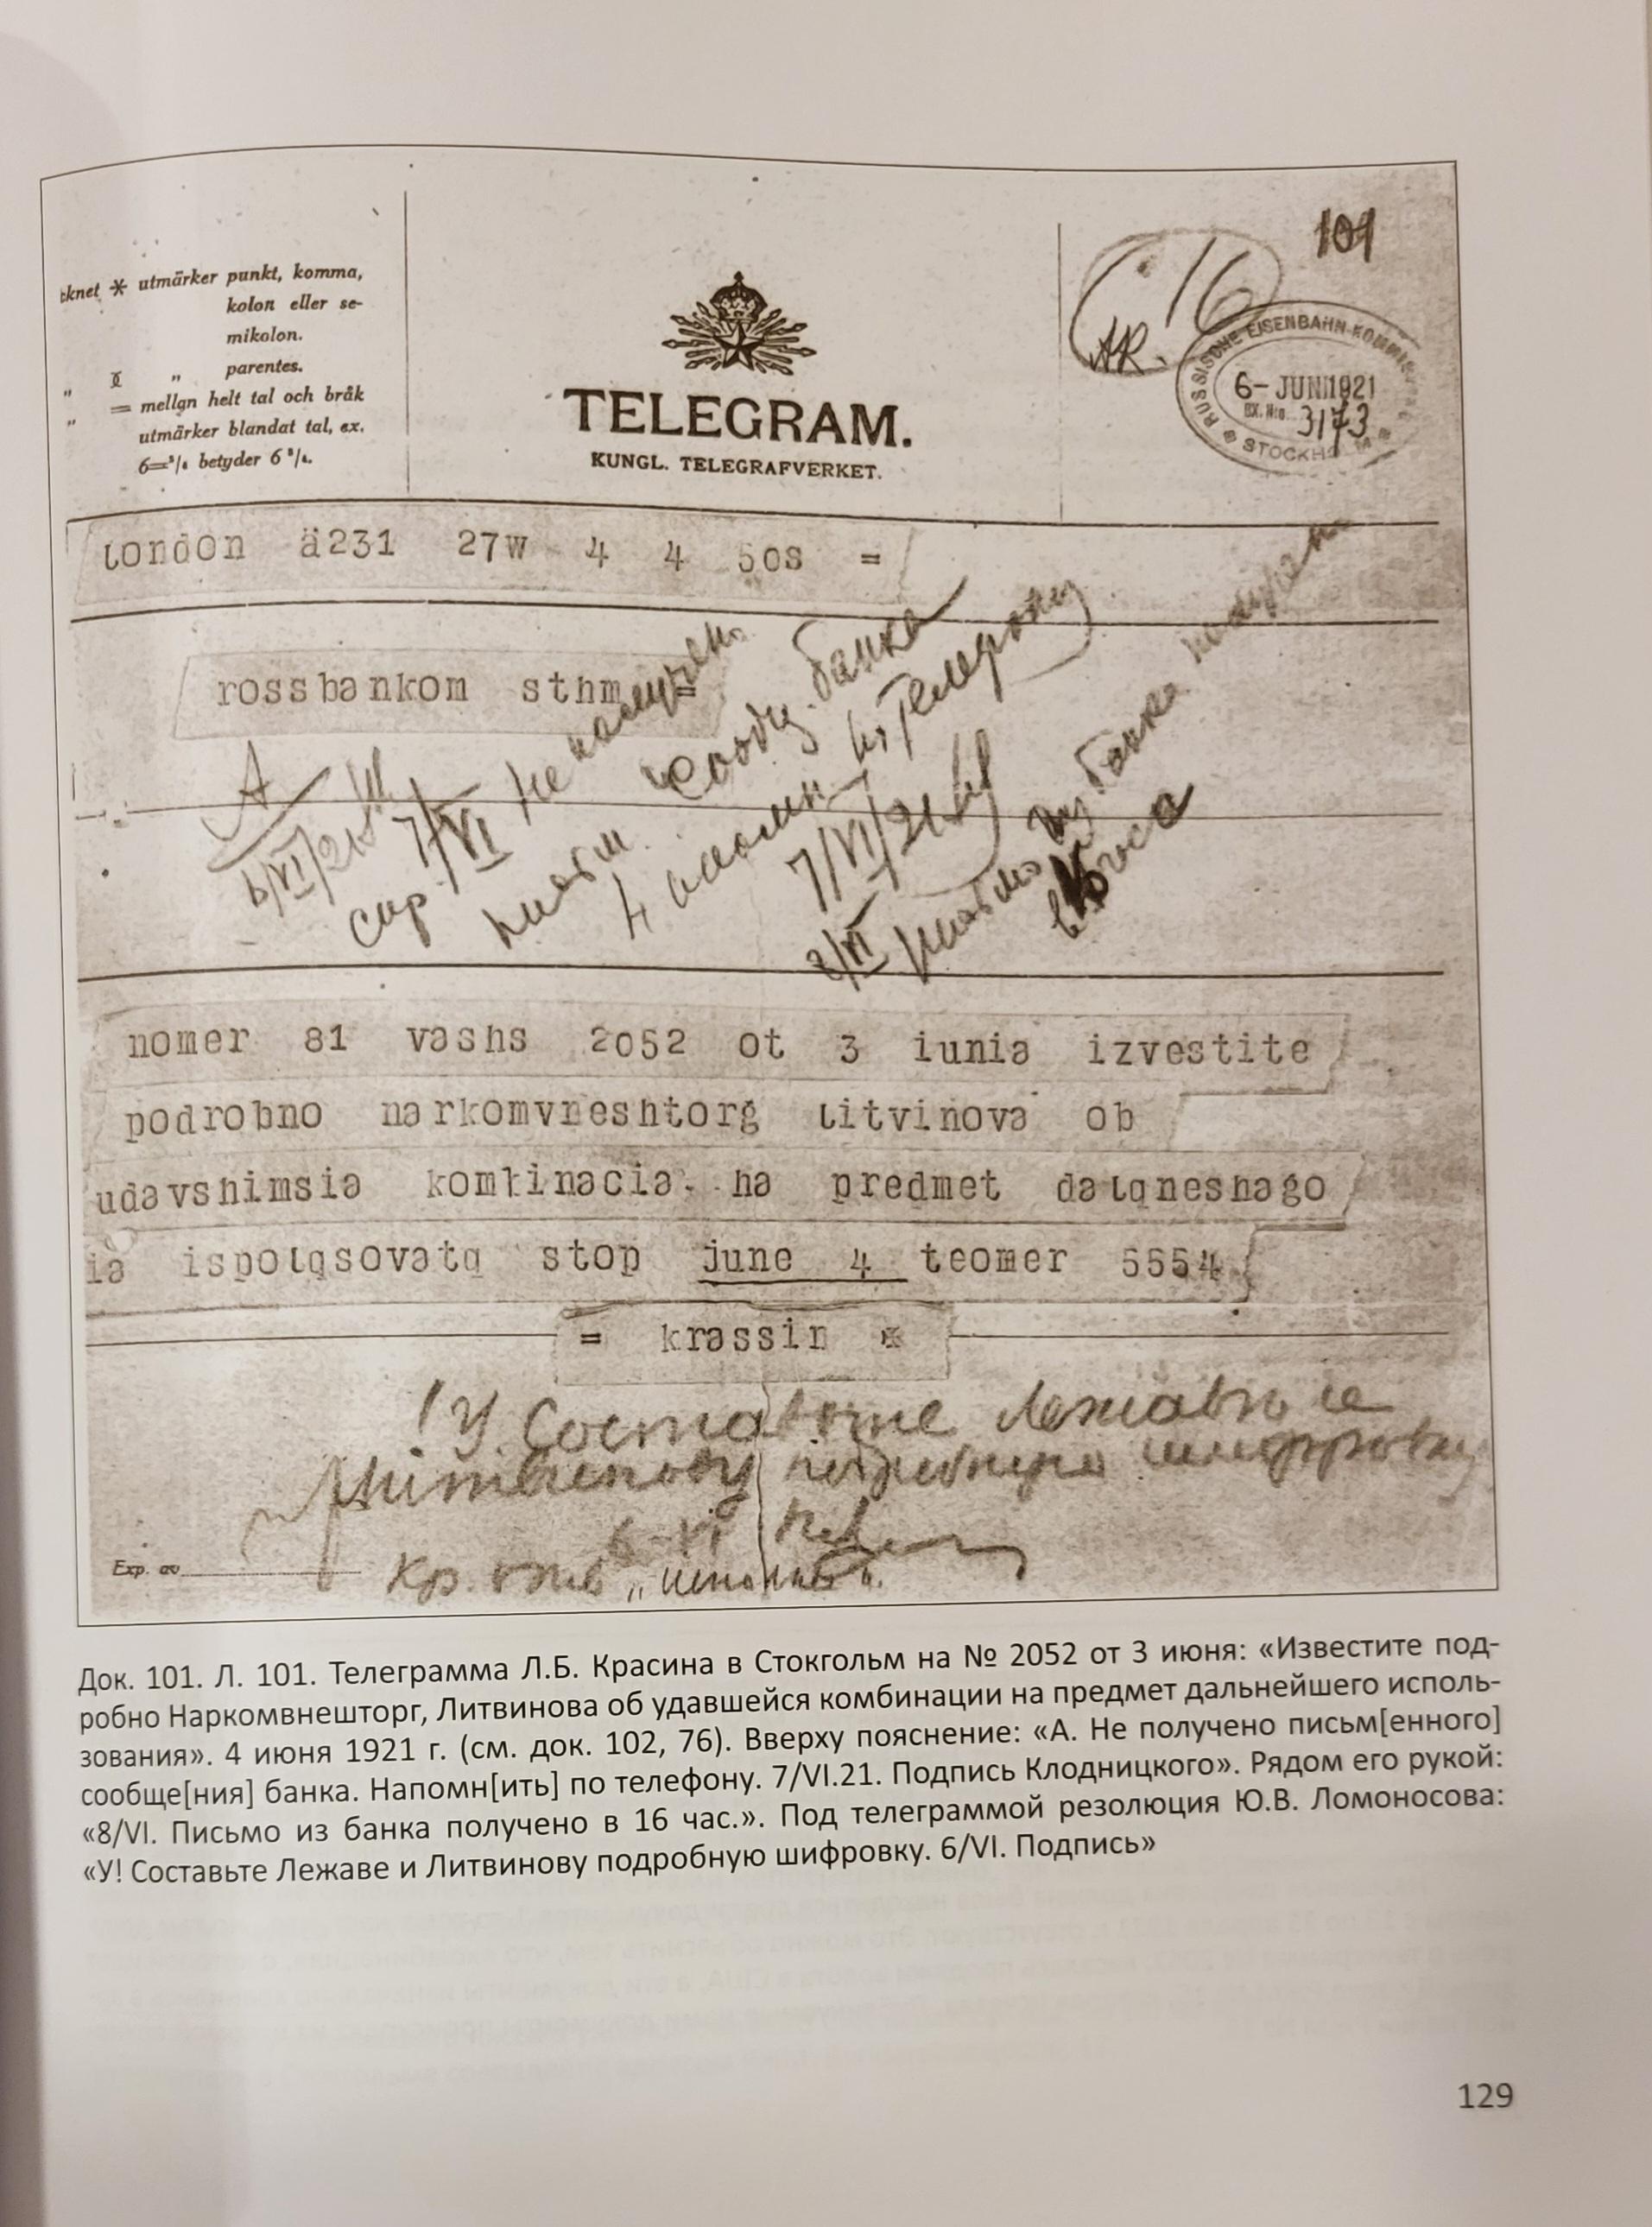 101
16
AR.
cknet * utmärker punkt, komma,
kolon eller se-
mikolon.
" " parentes.
" = mellan helt tal och bråk
utmärker blandat tal, ex.
6=⁵/₈ betyder 6 ⁵/₈.
TELEGRAM.
KUNGL. TELEGRAFVERKET.
RUSSISCHE EISENBAHN-KOMMI
6- JUNI 1921
BX. No. 3173
STOCKHOLM
london ä231 27w 4 4 50s =
rossbankom sthm =
А
6/VI/21
7/VI Не получен.
письм. сообщ. банка
напомн. по телефону
7/VI/21
8/VI Письмо из банка получено
в 16 часа
nomer 81 vashs 2052 ot 3 iunia izvestite
podrobno narkomvneshtorg litvinova ob
udavshimsia komtinacia. na predmet dalqneshago
ia ispolqsovatq stop june 4 teomer 5554
= krassin *
! У. Составьте Лежаве и
Литвинову подробную шифровку
6-VI
Кр.
Exp. av
Док. 101. Л. 101. Телеграмма Л.Б. Красина в Стокгольм на № 2052 от 3 июня: «Известите под-
робно Наркомвнешторг, Литвинова об удавшейся комбинации на предмет дальнейшего исполь-
зования». 4 июня 1921 г. (см. док. 102, 76). Вверху пояснение: «А. Не получено письм[енного]
сообще[ния] банка. Напомн[ить] по телефону. 7/VI.21. Подпись Клодницкого». Рядом его рукой:
«8/VI. Письмо из банка получено в 16 час.». Под телеграммой резолюция Ю.В. Ломоносова:
«У! Составьте Лежаве и Литвинову подробную шифровку. 6/VI. Подпись»
129